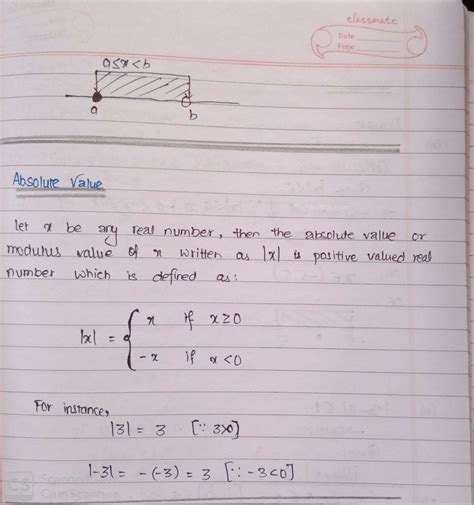 classmate
Date
Page
a≤x<b
a
b
Absolute Value
let x be any real number, then the absolute value or
modulus value of x written as |x| is positive valued real
number which is defined as:
|x| = { x if x≥0
-x if x<0
For instance,
|3| = 3 [∵ 3>0]
|-3| = -(-3) = 3 [∵ -3<0]
CS Scanned
CamScanner